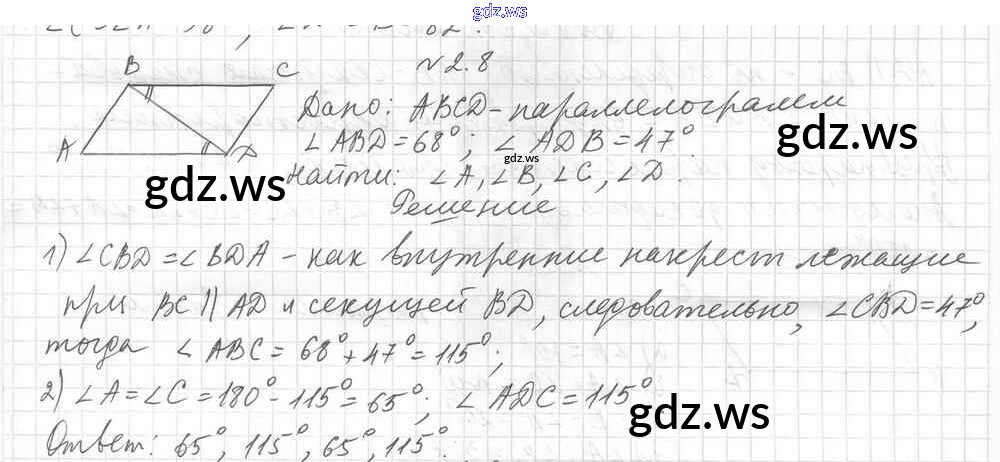 gdz.ws
N 2.8
B
C
A
D
Дано: ABCD - параллелограмм
∠ABD = 68°; ∠ADB = 47°.
gdz.ws
gdz.ws
gdz.ws
Найти: ∠A, ∠B, ∠C, ∠D.
Решение
1) ∠CBD = ∠BDA - как внутренние накрест лежащие
при BC || AD и секущей BD, следовательно, ∠CBD = 47°,
тогда ∠ABC = 68° + 47° = 115°;
2) ∠A = ∠C = 180° - 115° = 65°; ∠ADC = 115°
gdz.ws
Ответ: 65°, 115°, 65°, 115°.